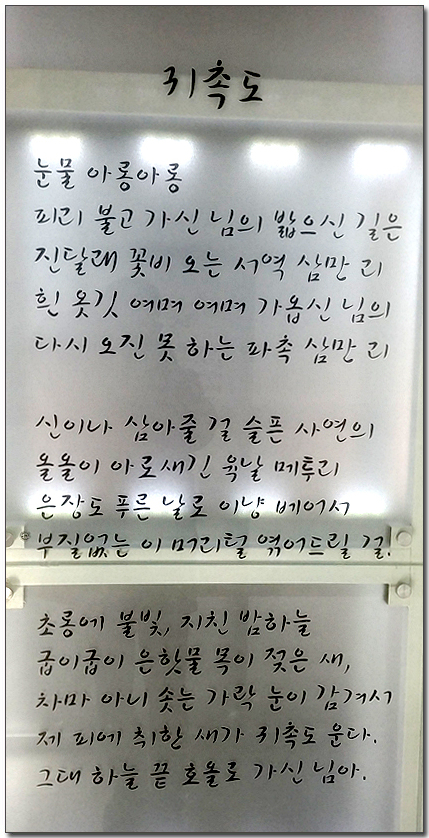 귀촉도
눈물 아롱아롱
피리 불고 가신 님의 밟으신 길은
진달래 꽃비 오는 서역 삼만 리
흰 옷깃 여며 여며 가옵신 님의
다시 오진 못 하는 파촉 삼만 리
신이나 삼아줄 걸 슬픈 사연의
올올이 아로새긴 육날 메투리
은장도 푸른 날로 이냥 베어서
부질없는 이 머리털 엮어드릴 걸!
초롱에 불빛, 지친 밤하늘
굽이굽이 은핫물 목이 젖은 새,
차마 아니 솟는 가락 눈이 감겨서
제 피에 취한 새가 귀촉도 운다.
그대 하늘 끝 호올로 가신 님아.